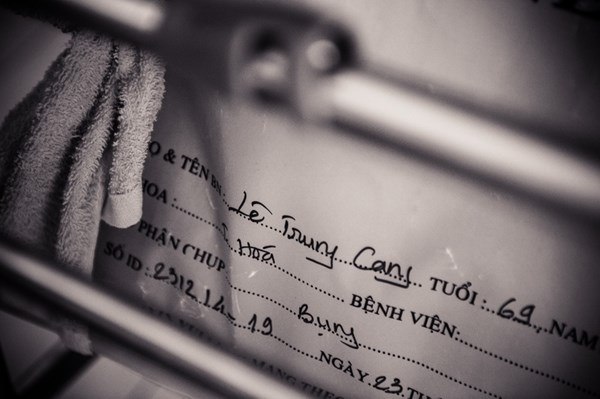 Ọ & TÊN BN: Lê Trung Cang TUỔI: 69 NAM
HOA: Hoá BỆNH VIỆN:
PHẬN CHỤP Bụng
SỐ ID: 2312.14-19 NGÀY 23
MANG THEO